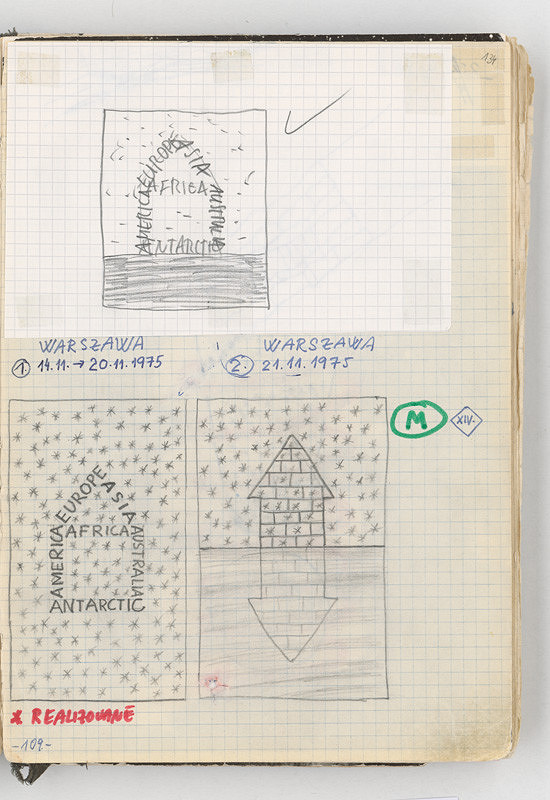 134
EUROPE ASIA
AMERICA
AFRICA
AUSTRALIA
ANTARCTIC
WARSZAWA
1. 14.11. → 20.11.1975
WARSZAWA
2. 21.11.1975
M
XIV.
EUROPE ASIA
AMERICA
AFRICA
AUSTRALIA
ANTARCTIC
x REALIZOWANE
-109-